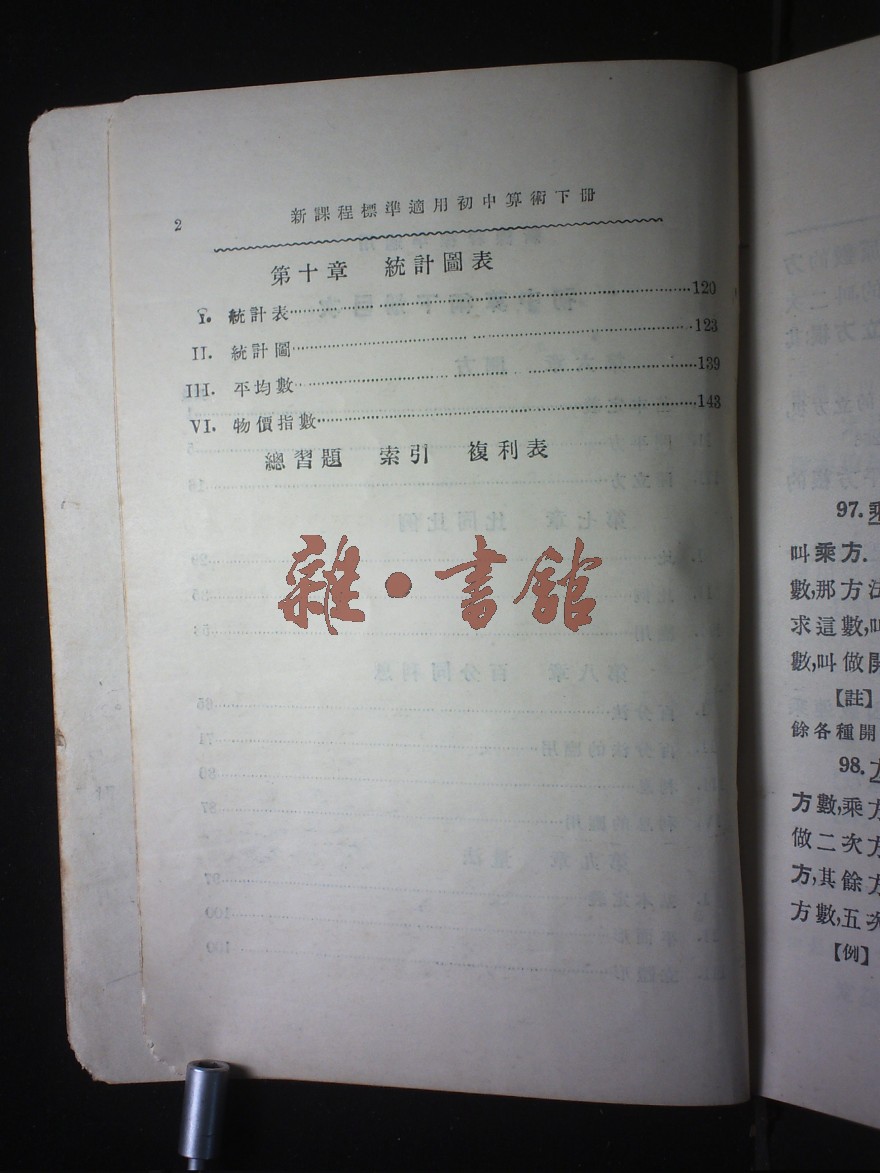 2
新課程標準適用初中算術下冊
第十章 統計圖表
I. 統計表 120
II. 統計圖 123
III. 平均數 139
VI. 物價指數 143
總習題 索引 複利表
雜·書館
97.乘
叫乘方.
數,那方法
求這數,叫
數,叫做開
【註】
餘各種開
98.方
方數,乘方
做二次方
方,其餘方
方數,五次
【例】